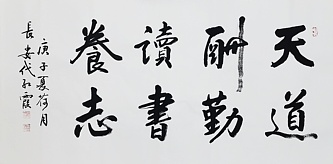 天道
酬勤
讀書
養志
庚子夏荷月
長安代紅霞